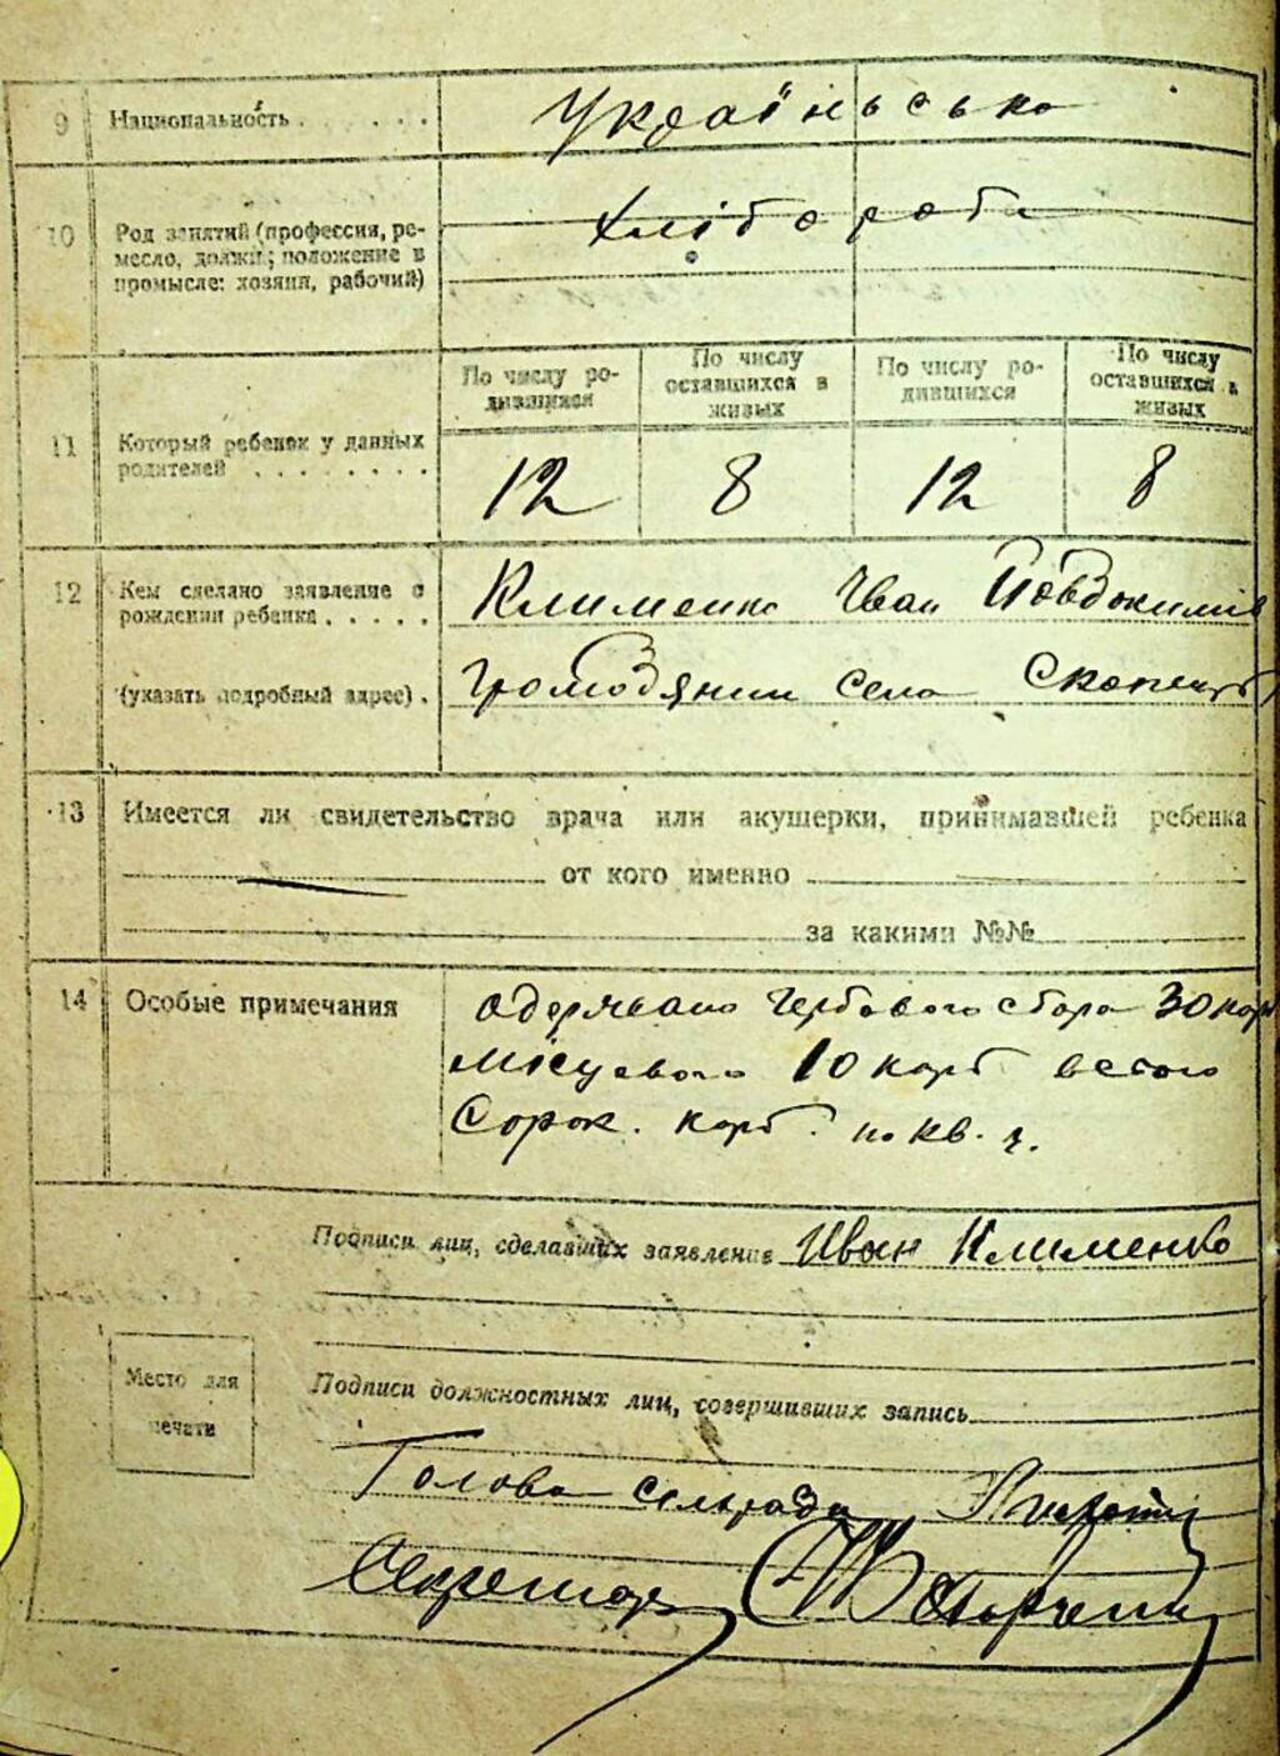 9 Национальность . . . . . . Українська
10 Род занятий (профессия, ре-
месло, должн.; положение в
промысле: хозяин, рабочий)
Хлібороби
11 Который ребенок у данных
родителей . . . . . . . .
По числу ро-
дившихся
По числу
оставшихся в
живых
По числу ро-
дившихся
По числу
оставшихся в
живых
12 8 12 8
12 Кем сделано заявление о
рождении ребенка . . . . .
Клименко Иван Йовдокимів
(указать подробный адрес) .
громодянин села
13 Имеется ли свидетельство врача или акушерки, принимавшей ребенка
от кого именно
за какими №№
14 Особые примечания
Одержано Гербового сбора 30 коп
місцевого 10 карб всього
Сорок. карб. по кв. ч.
Подписи лиц, сделавших заявление Иван Клименко
Место для
печати
Подписи должностных лиц, совершивших запись
Голова сельради
Секретарь